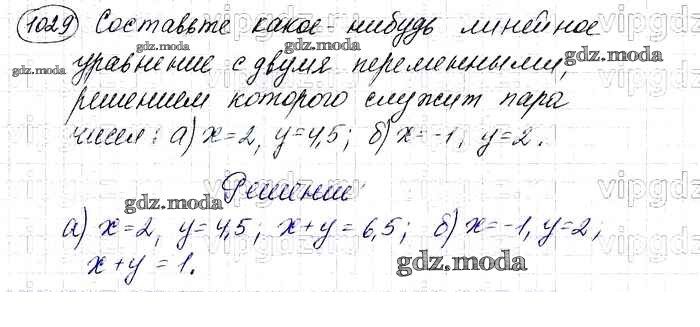 1029 Составьте какое-нибудь линейное
уравнение с двумя переменными,
решением которого служит пара
чисел: а) x=2, y=4,5; б) x=-1, y=2.
Решение:
а) x=2, y=4,5; x+y=6,5; б) x=-1, y=2;
x+y=1.
gdz.moda
gdz.moda
gdz.moda
gdz.moda
gdz.moda
gdz.moda
vipgdz
vipgdz
vipgdz
vipgdz
vipgdz